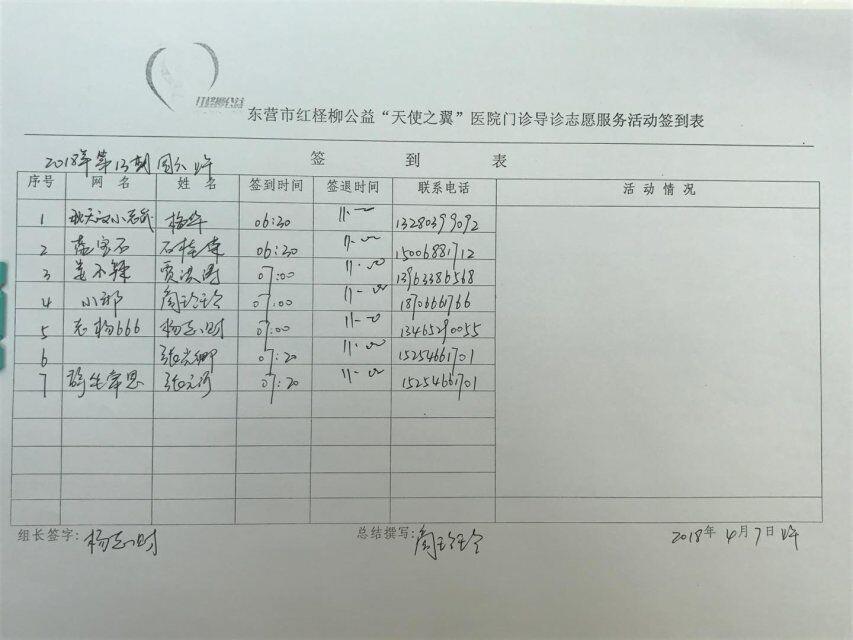 红柽柳公益
东营市红柽柳公益“天使之翼”医院门诊导诊志愿服务活动签到表
2018年第13期周六上午
签 到 表
序号 网 名 姓 名 签到时间 签退时间 联系电话 活 动 情 况
1 梅华 06:30 11:00 13280399092
2 06:30 11:00 15006881712
3 姜不辣 07:00 11:00 13963386568
4 小郭 周玲玲 07:00 11:00 18706661766
5 老杨666 杨志财 07:00 11:00 13465290055
6 07:20 11:00 15254661701
7 07:20 11:00 15254661701
组长签字:杨志财 总结撰写:周玲玲 2018年4月7日上午